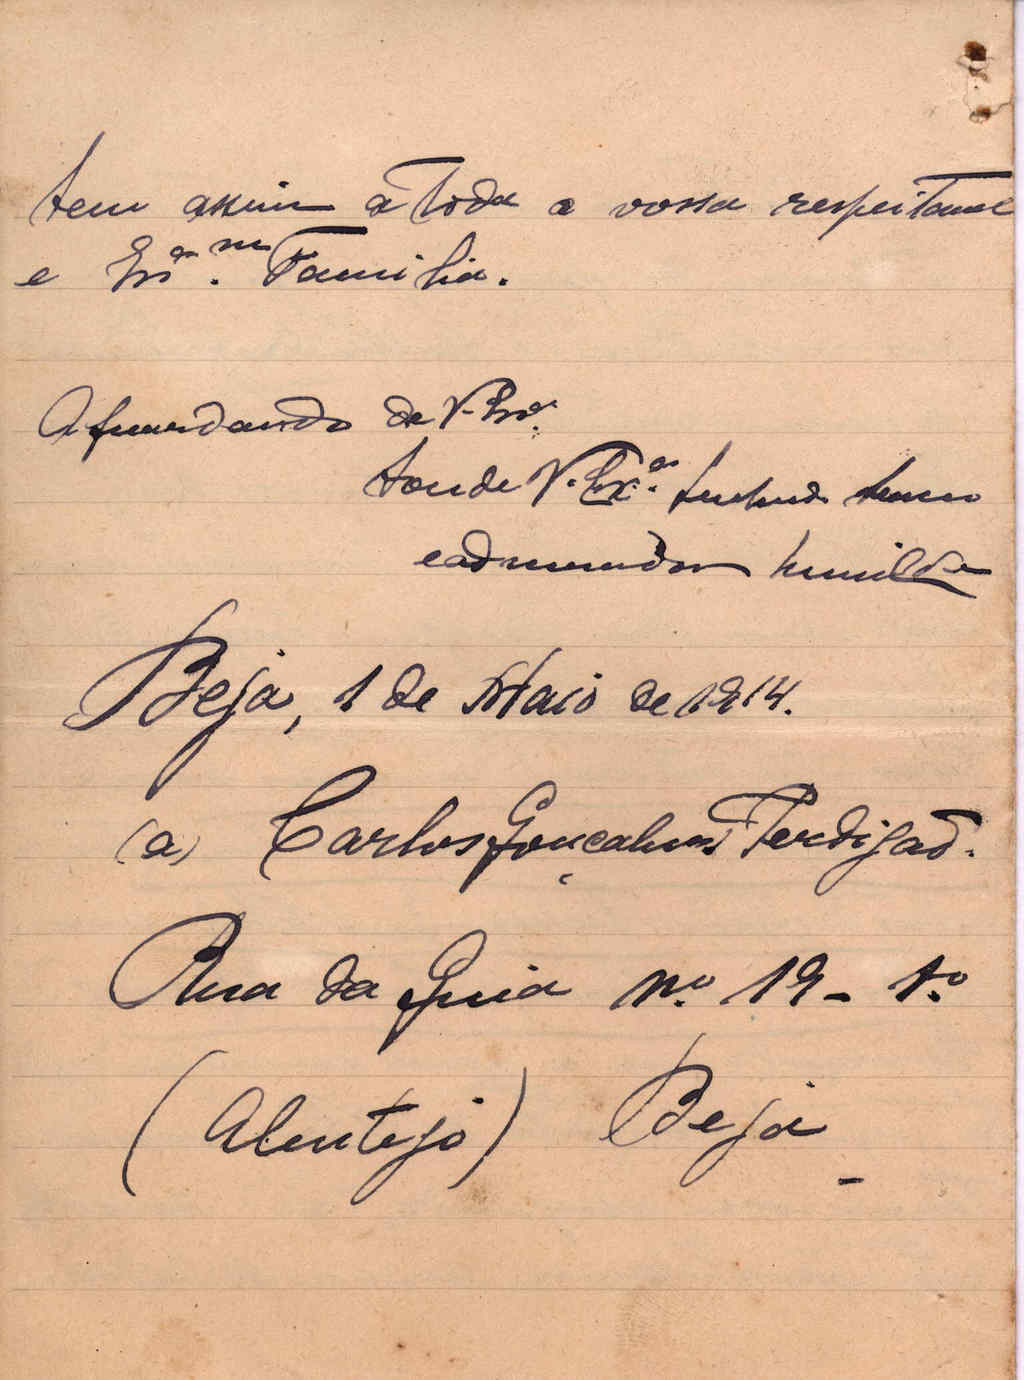 tem assim a toda a vossa respeitavel
e Ex.ma Familia.
Aguardando de V. Ex.ª
sou de V. Ex.ª
e admirador humilde
Beja, 1 de Maio de 1914.
(a) Carlos Gonçalves Perdigaõ.
Rua da Guia n.º 19 - 1.º
(Alentejo) Beja